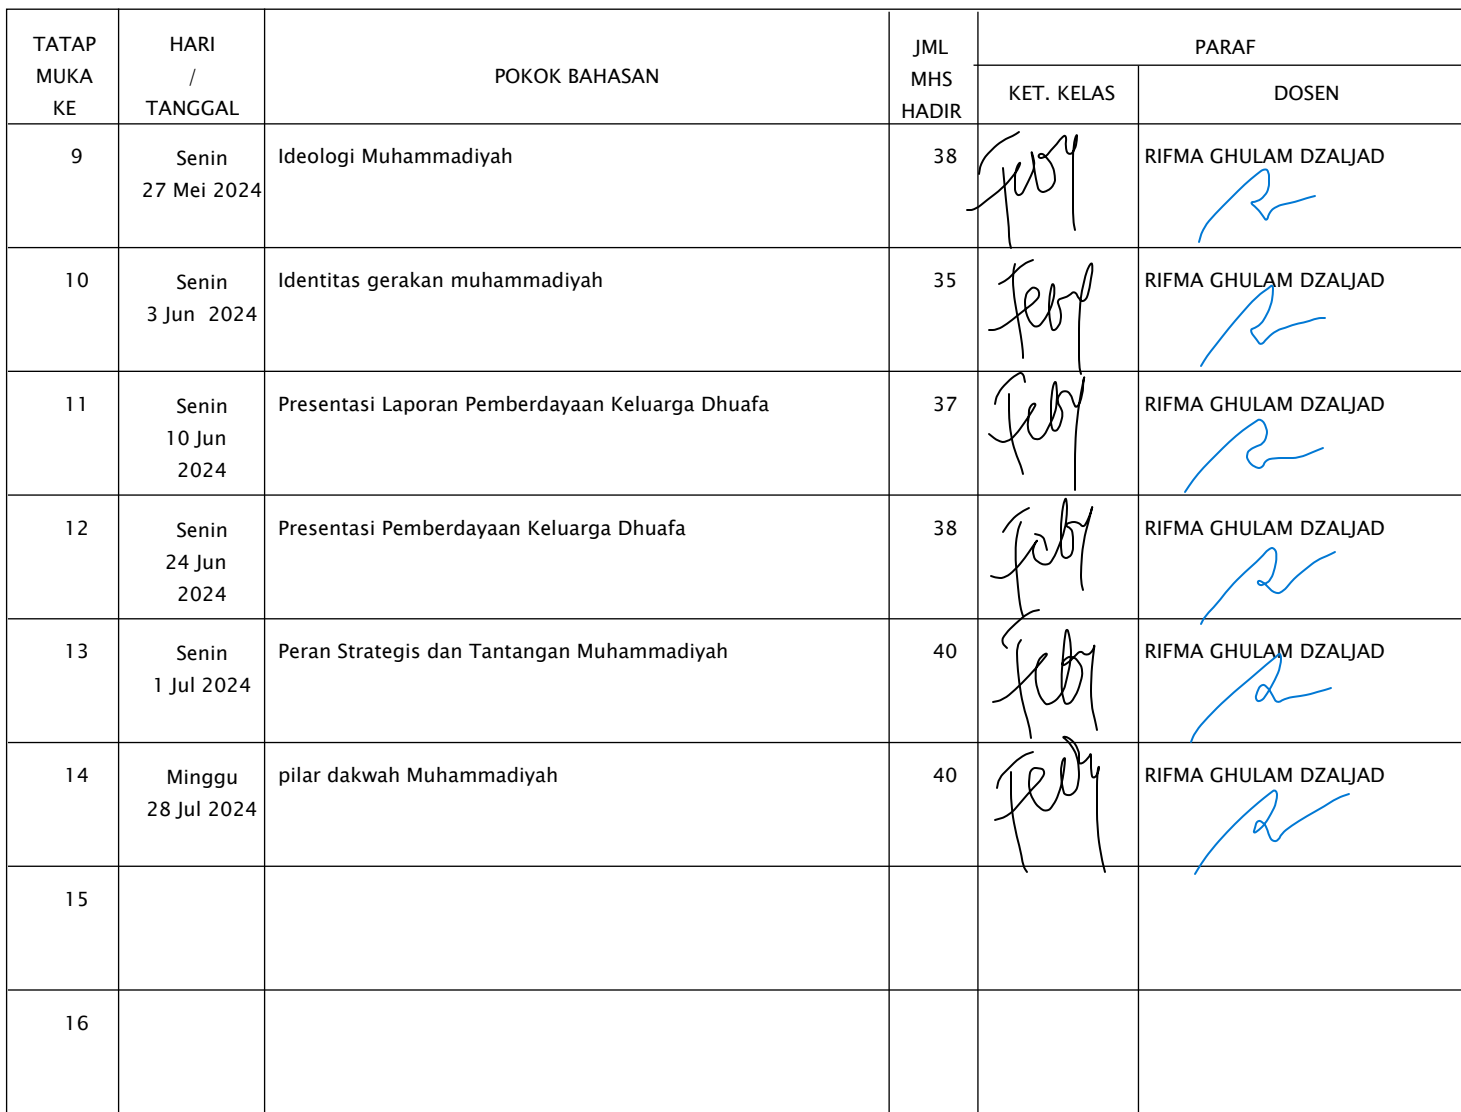 TATAP MUKA KE HARI / TANGGAL POKOK BAHASAN JML MHS HADIR PARAF
KET. KELAS DOSEN
9 Senin 27 Mei 2024 Ideologi Muhammadiyah 38 Feby RIFMA GHULAM DZALJAD
10 Senin 3 Jun 2024 Identitas gerakan muhammadiyah 35 Feby RIFMA GHULAM DZALJAD
11 Senin 10 Jun 2024 Presentasi Laporan Pemberdayaan Keluarga Dhuafa 37 Feby RIFMA GHULAM DZALJAD
12 Senin 24 Jun 2024 Presentasi Pemberdayaan Keluarga Dhuafa 38 Feby RIFMA GHULAM DZALJAD
13 Senin 1 Jul 2024 Peran Strategis dan Tantangan Muhammadiyah 40 Feby RIFMA GHULAM DZALJAD
14 Minggu 28 Jul 2024 pilar dakwah Muhammadiyah 40 Feby RIFMA GHULAM DZALJAD
15
16